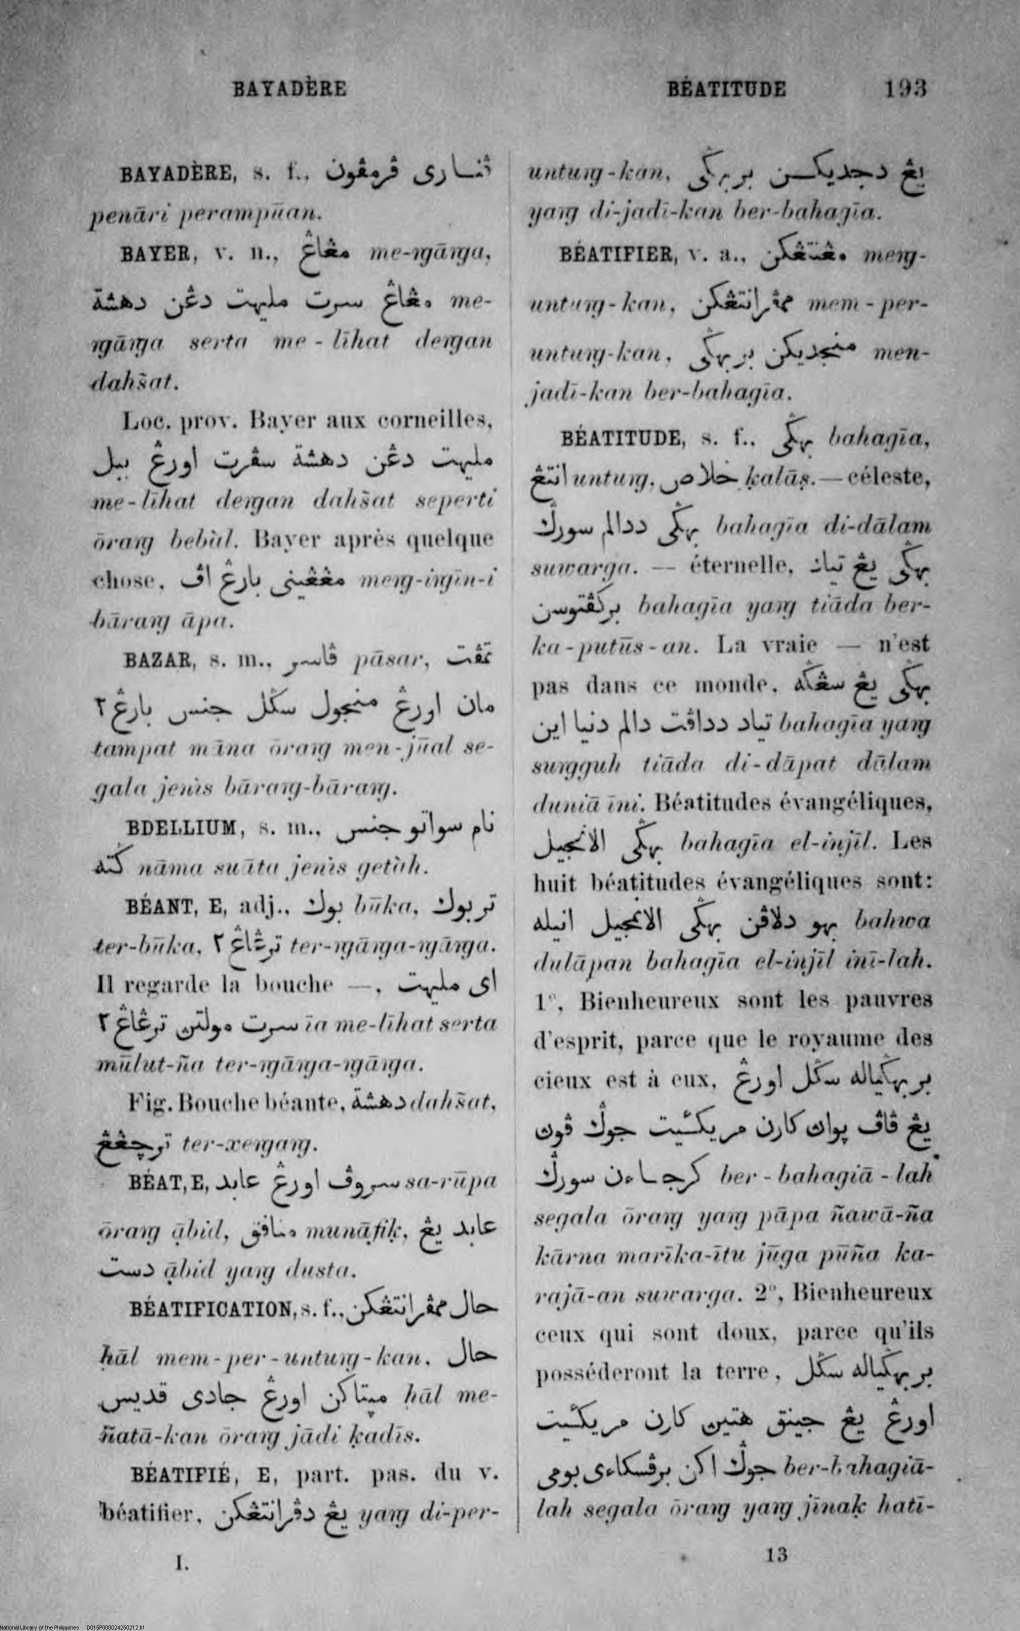 BAYADÈRE
BÉATITUDE 193
BAYADÈRE, s. f., ڤنــاری ڤرمڤون
penāri perampūan.
BAYER, v. n., مڠاڠ me-ngānga,
مڠاڠ سرت مليهت دڠن دهشة me-
ngānga serta me-līhat dengan
dahšat.
Loc. prov. Bayer aux corneilles,
مليهت دڠن دهشة سڤرت اورڠ ببل
me-līhat dengan dahšat seperti
ōrang bebùl. Bayer après quelque
chose, مڠڠينی بارڠ اڤ meng-ingīn-i
bārang āpa.
BAZAR, s. m., ڤاسر pāsar, تمڤت
مان اورڠ منجول سڬل جنس بارڠ ٢
tampat māna ōrang men-jūal se-
gala jenìs bārang-bārang.
BDELLIUM, s. m., نام سواتو جنس
ڬته nāma suāta jenìs getàh.
BÉANT, E, adj., بوك būka, تربوك
ter-būka, ترڠاڠ ٢ ter-ngānga-ngānga.
Il regarde la bouche —, ای مليهت
سرت مولتن ترڠاڠ ٢ īa me-līhat serta
mūlut-ña ter-ngānga-ngānga.
Fig. Bouche béante, دهشة dahšat,
ترچڠڠ ter-xengang.
BÉAT, E, سروڤ اورڠ عابد sa-rūpa
ōrang ạ̄bid, منافق munāfiḳ, عابد يڠ
دست ạ̄bid yang dusta.
BÉATIFICATION, s. f., حال ممڤرانتڠكن
ḥāl mem-per-untung-kan, حال
مپتاكن اورڠ جادی قديس ḥāl me-
ñatā-kan ōrang jādi ḳadīs.
BÉATIFIÉ, E, part. pas. du v.
béatifier, يڠ دڤرانتڠكن yang di-per-
untung-kan, يڠ دجديكــن بربهڬی
yang di-jadī-kan ber-bahagīa.
BÉATIFIER, v. a., مڠنتڠكن meng-
untung-kan, ممڤرانتڠكن mem-per-
untung-kan, منجديكن بربهڬی men-
jadī-kan ber-bahagīa.
BÉATITUDE, s. f., بهڬی bahagīa,
انتڠ untung, خلاص ḳalāṣ. — céleste,
بهڬی ددالم سورڬ bahagīa di-dālam
suwarga. — éternelle, بهڬی يڠ تياد
بركڤتوسن bahagīa yang tiāda ber-
ka-putūs-an. La vraie — n'est
pas dans ce monde, بهڬی يڠ سڠڬه
تياد دداڤت دالم دنيا اين bahagīa yang
sungguh tiāda di-dāpat dālam
duniā īni. Béatitudes évangéliques,
بهڬی الانجيل bahagīa el-injīl. Les
huit béatitudes évangéliques sont:
بهو دلاڤن بهڬی الانجيل انيله bahwa
dulāpan bahagīa el-injīl inī-lah.
1°, Bienheureux sont les pauvres
d'esprit, parce que le royaume des
cieux est à eux, بربهڬياله سڬل اورڠ
يڠ ڤاڤ پوان كارن مريكئيت جوڬ ڤون
كرجــاءن سورڬ ber-bahagiā-lah
segala ōrang yang pāpa ñawā-ña
kārna marīka-ītu jūga pūña ka-
rajā-an suwarga. 2°, Bienheureux
ceux qui sont doux, parce qu'ils
posséderont la terre, بربهڬياله سڬل
اورڠ يڠ جينق هتين كارن مريكئيت
جوڬ اكن برڤسكاءی بومی ber-bahagiā-
lah segala ōrang yang jīnaḳ hatī-
I.
13
National Library of the Philippines